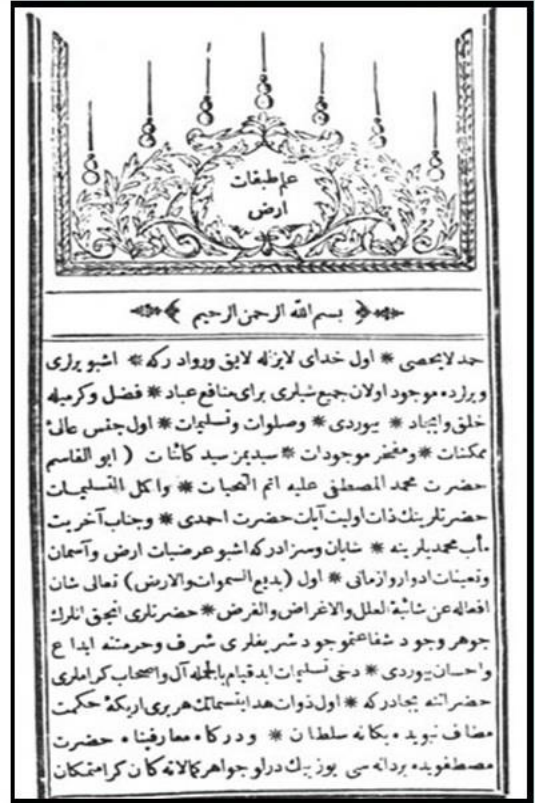 علم طبقات
ارض
بسم الله الرحمن الرحيم
حمد لايحصى * اول خداى لايزله لايق ورواد ركه * اشبو يرلرى
ويرلرده موجود اولان جميع شيلرى براى منافع عباد * فضل وكرميله
خلق وايجاد * بيوردى * وصلوات وتسليمات * اول جنس عالئ
ممكنات * ومفخر موجودات * سيديمز سيد كائنات ( ابو القاسم
حضرت محمد المصطفى عليه اتم التحيات * واكمل التسليمات
حضرتلرينك ذات اوليت آيات حضرت احمدى * وجناب آخريت
مأب محمديلرينه * شايان وسزادركه اشبو عرضيات ارض وآسمان
وتعينات ادوار وازمانى * اول (بديع السموات والارض) تعالى شان
افعاله عن شائبة العلل والاغراض والغرض * حضرتلرى انجق انلرك
جوهر وجود شفاعتموجود شريفلرى شرف وحرمتنه ابداع
واحسان بيوردى * دخى تسليمات ابد قيام بالجمله آل واصحاب كراملرى
حضراتنه بجادركه * اول ذوات هدا بتسماتك هر برى اريكۀ حكمت
مضاف نبويده يكانه سلطان * ودركاه معارفپناه حضرت
مصطفويده بردانه سى يوز بيك درلو جواهر كمالاته كان كرامتمكان